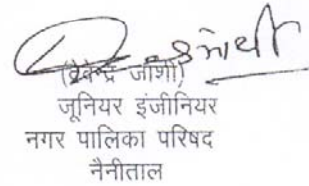 (देवेन्द्र जोशी)
जूनियर इंजीनियर
नगर पालिका परिषद
नैनीताल